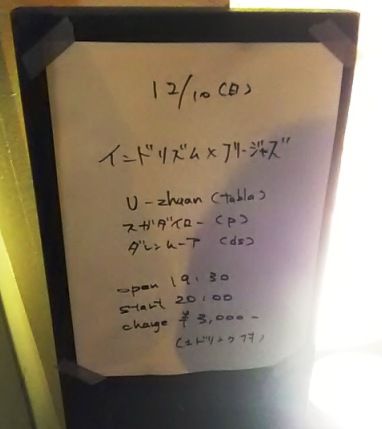 12/10(日)
インドリズム×フリージャズ
U-zhaan (tabla)
スガダイロー (p)
ダレンムーア (ds)
open 19:30
start 20:00
charge ¥3,000-
(1ドリンク付)